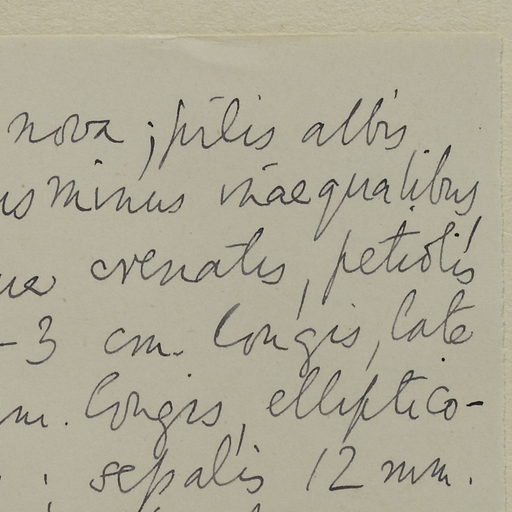 nova ; pilis albis
usminus inaequalibus
ue crenatis, petiolis
-3 cm. longis, late
m. longis, elliptico-
; sepalis 12 mm.